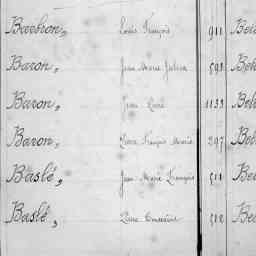 Barbron, Louis François 911 Bei
Baron, Jean Marie Julien 593 Bel
Baron, Jean René 1153 Bel
Baron, Pierre François Marie 297 Bel
Baslé, Jean Marie François 511 Be
Baslé, Pierre 512 Be